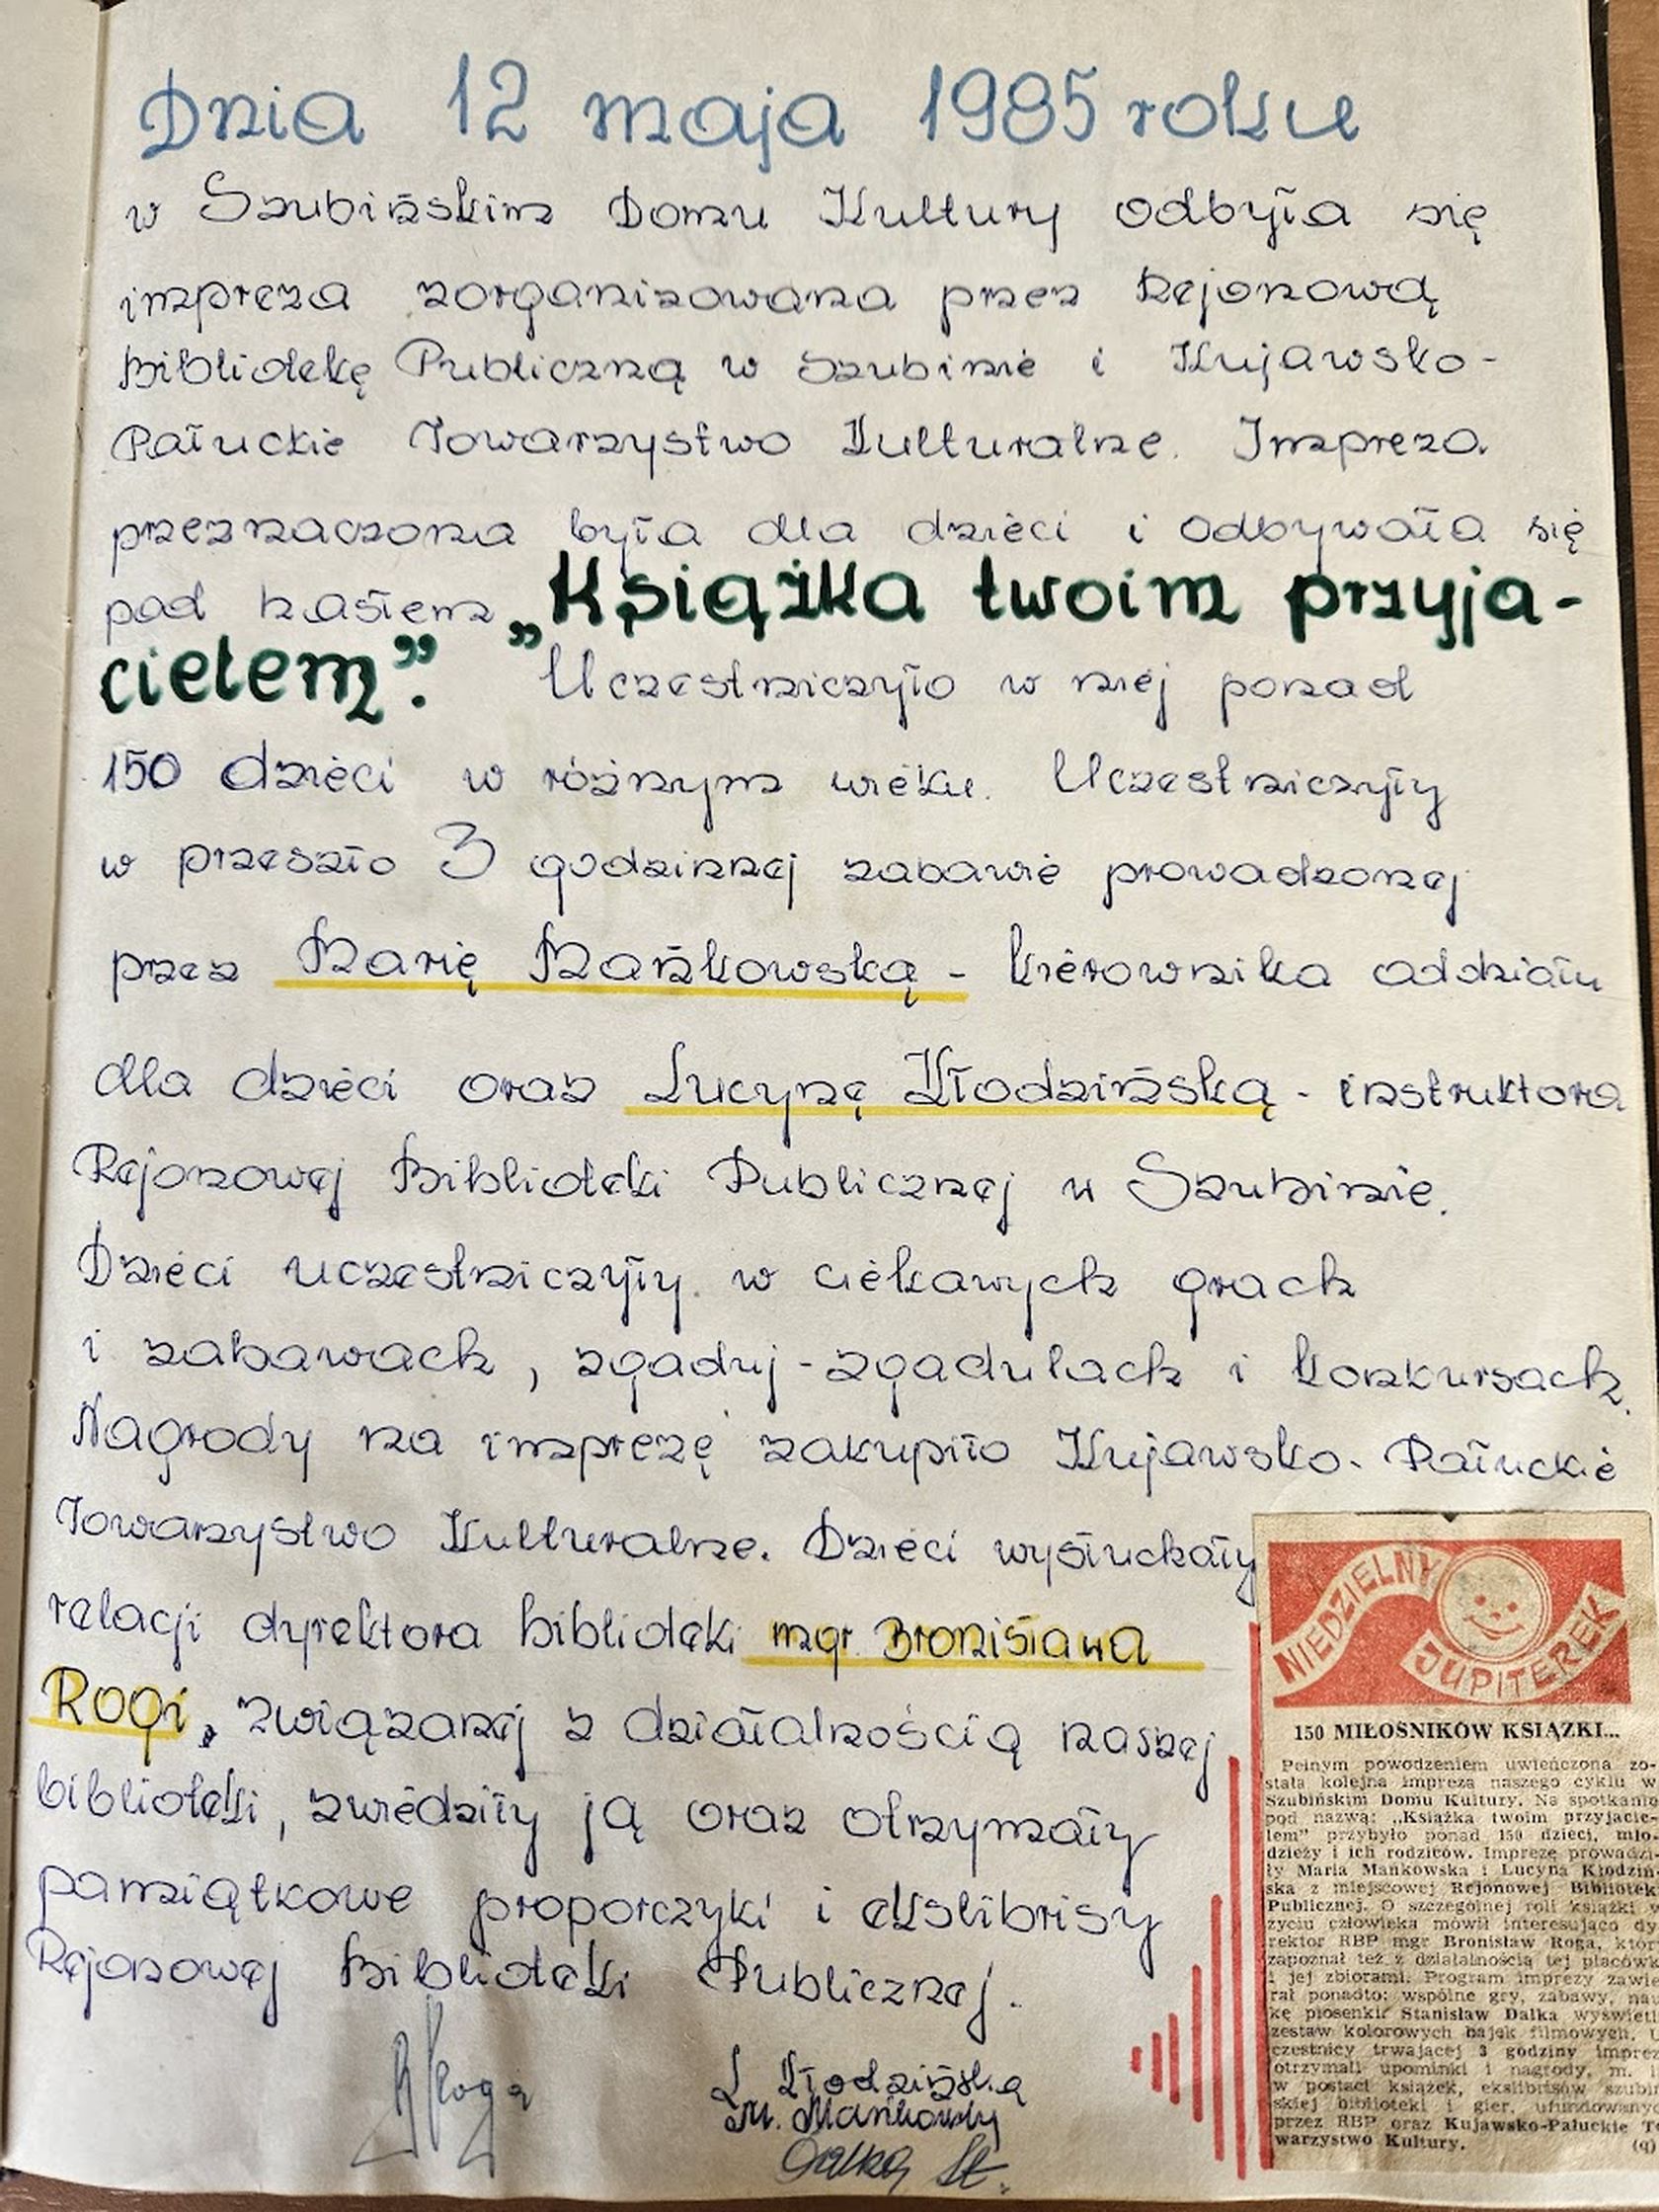 Dnia 12 maja 1985 roku
w Szubińskim Domu Kultury odbyła się
impreza zorganizowana przez Rejonową
Bibliotekę Publiczną w Szubinie i Kujawsko-
Pałuckie Towarzystwo Kulturalne. Impreza
przeznaczona była dla dzieci i odbywała się
pod hasłem „Książka twoim przyja-
cielem”. Uczestniczyło w niej ponad
150 dzieci w różnym wieku. Uczestniczyły
w przeszło 3 godzinnej zabawie prowadzonej
przez Marię Mańkowską - kierownika oddziału
dla dzieci oraz Lucynę Kłodzińską - instruktora
Rejonowej Biblioteki Publicznej w Szubinie.
Dzieci uczestniczyły w ciekawych grach
i zabawach, zgaduj-zgadulach i konkursach.
Nagrody na imprezę zakupiło Kujawsko-Pałuckie
Towarzystwo Kulturalne. Dzieci wysłuchały
relacji dyrektora biblioteki mgr. Bronisława
Rogi, związanej z działalnością naszej
biblioteki, zwiedziły ją oraz otrzymały
pamiątkowe proporczyki i ekslibrisy
Rejonowej Biblioteki Publicznej.
BRoga
L. Kłodzińska
M. Mańkowska
Dalka St.
NIEDZIELNY
JUPITEREK
150 MIŁOŚNIKÓW KSIĄŻKI...
Pełnym powodzeniem uwieńczona zo-
stała kolejna impreza naszego cyklu w
Szubińskim Domu Kultury. Na spotkanie
pod nazwą: „Książka twoim przyjacie-
lem” przybyło ponad 150 dzieci, mło-
dzieży i ich rodziców. Imprezę prowadzi-
ły Maria Mańkowska i Lucyna Kłodziń-
ska z miejscowej Rejonowej Bibliotek
Publicznej. O szczególnej roli książki w
życiu człowieka mówił interesująco dy-
rektor RBP mgr Bronisław Roga, któr
zapoznał też z działalnością tej placówk
i jej zbiorami. Program imprezy zawie
rał ponadto: wspólne gry, zabawy, nau
kę piosenki. Stanisław Dalka wyświetl
zestaw kolorowych bajek filmowych. U
czestnicy trwającej 3 godziny imprez
otrzymali upominki i nagrody, m. i
w postaci książek, ekslibrisów szubiń
skiej biblioteki i gier, ufundowanyc
przez RBP oraz Kujawsko-Pałuckie To
warzystwo Kultury. (q)